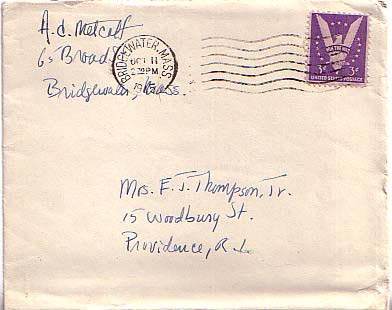 A. C. Metcalf
6 Broad
Bridgewater, Mass.
BRIDGEWATER, MASS.
OCT 11
2 30 PM
WIN THE WAR
3¢ 3¢
UNITED STATES POSTAGE
Mrs. E. J. Thompson, Jr.
15 Woodbury St.
Providence, R.I.